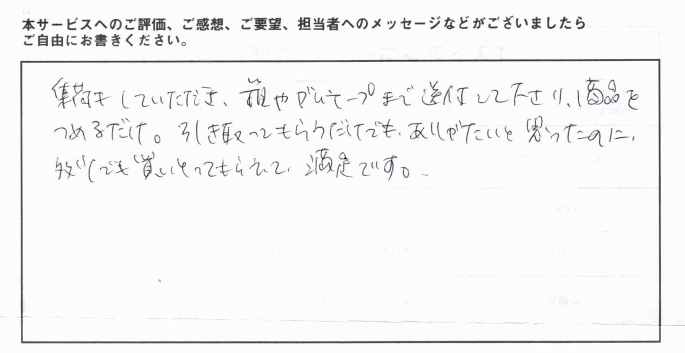 本サービスへのご評価、ご感想、ご要望、担当者へのメッセージなどがございましたら
ご自由にお書きください。
集荷もしていただき、箱やガムテープまで送付して下さり、商品を
つめるだけ。引き取ってもらうだけでも、ありがたいと思ったのに、
少しでも買いとってもらえて、満足です。